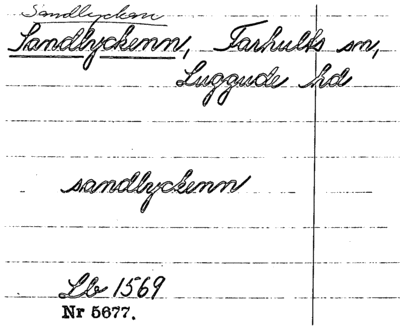 Sandlyckan
Sandlyckenn, Farhults sn,
Luggude hd
sandlyckenn
Lb 1569
Nr 5677.